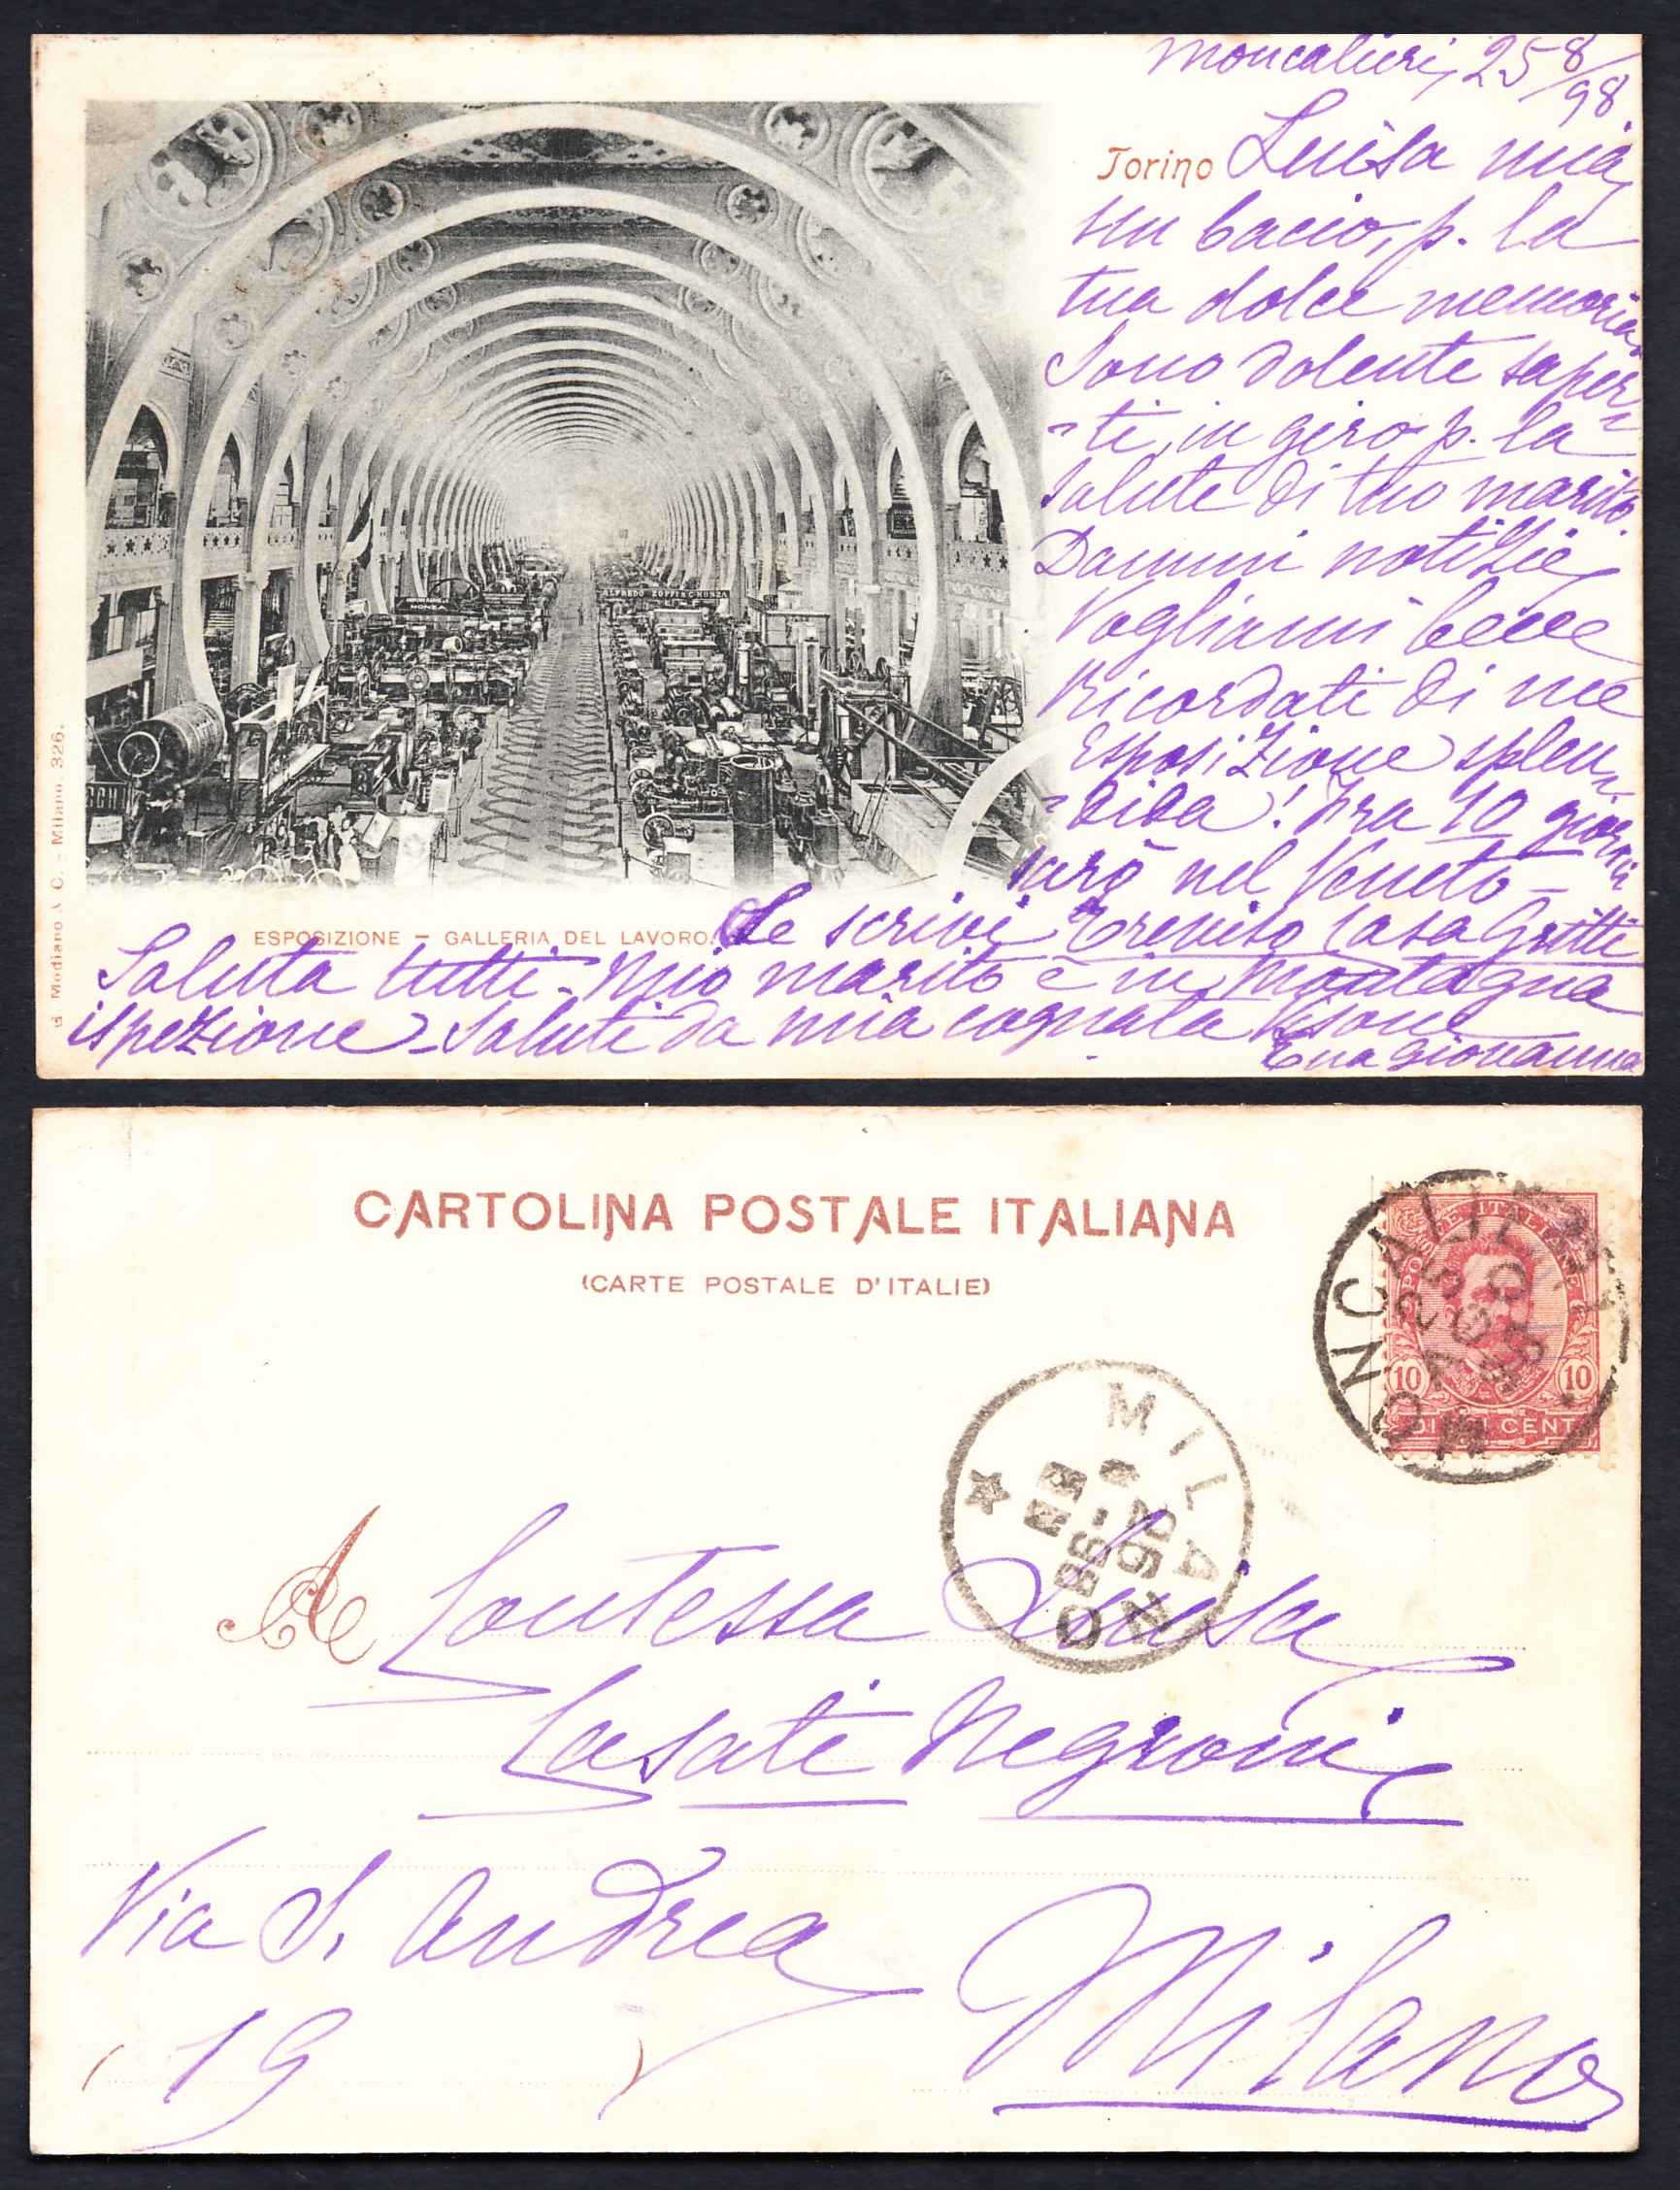 Moncalieri, 25 8/98
Torino Luisa mia,
un bacio, p. la
tua dolce memoria
Sono dolente saper-
-ti in giro p. la
salute di tuo marito.
Dammi notizie,
Vogliami bene
Ricordati di me
Esposizione splen-
-dida! Fra 10 giorni
sarò nel Veneto -
Se scrivi, Treviso Casa Gritti
Saluta tutti - Mio marito è in montagna
ispezione - Saluti da mia cognata
tua Giovanna
ALFREDO ZOPFI & C. MONZA
MONZA
ESPOSIZIONE - GALLERIA DEL LAVORO.
G. Modiano & C. - Milano. 326.
CARTOLINA POSTALE ITALIANA
(CARTE POSTALE D'ITALIE)
MONCALIERI
25 AGO 98
POSTE ITALIANE
10 10
DIECI CENT
MILANO
25
-98
A Contessa Luisa
Casati Negroni
Via S. Andrea
19
Milano